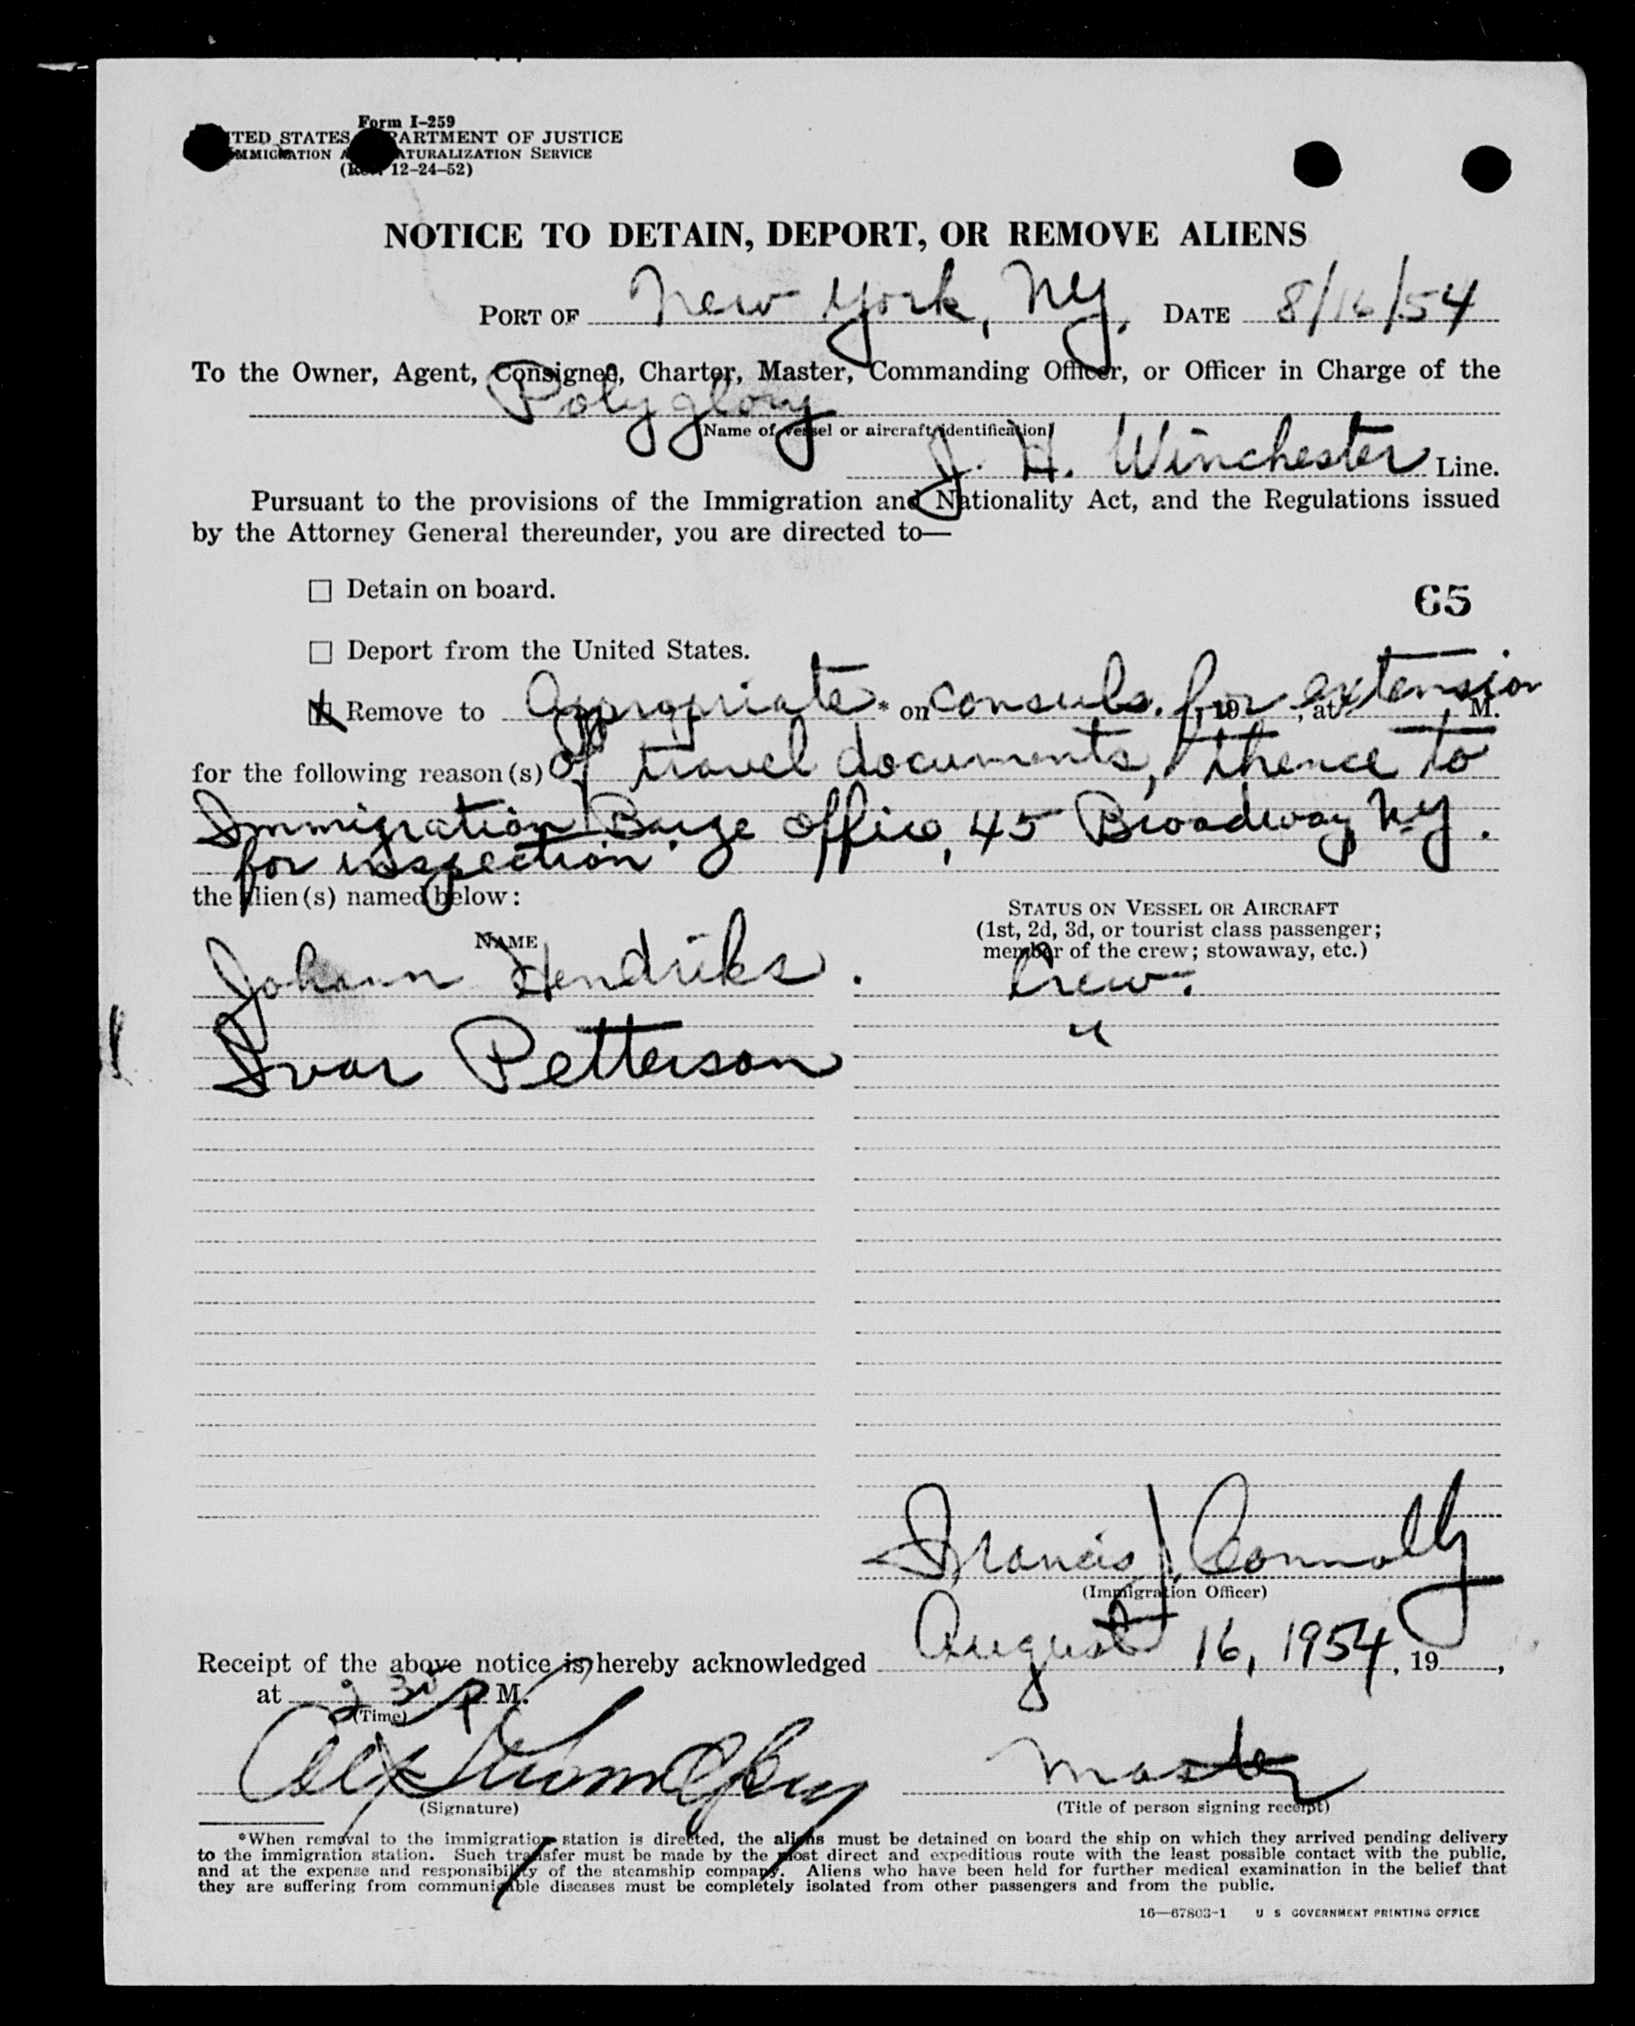 Form I-259
UNITED STATES DEPARTMENT OF JUSTICE
IMMIGRATION AND NATURALIZATION SERVICE
(Rev. 12-24-52)
NOTICE TO DETAIN, DEPORT, OR REMOVE ALIENS
PORT OF New York, NY. DATE 8/16/54
To the Owner, Agent, Consignee, Charter, Master, Commanding Officer, or Officer in Charge of the
Polyglory
(Name of vessel or aircraft identification)
J. H. Winchester Line.
Pursuant to the provisions of the Immigration and Nationality Act, and the Regulations issued
by the Attorney General thereunder, you are directed to—
Detain on board.
65
Deport from the United States.
Remove to appropriate * on consuls. for , 19 , at extension M.
for the following reason(s) of travel documents, thence to
Immigration Barge office, 45 Broadway NY.
for inspection.
the alien(s) named below:
STATUS ON VESSEL OR AIRCRAFT
(1st, 2d, 3d, or tourist class passenger;
NAME member of the crew; stowaway, etc.)
Johann Hendriks. Crew.
Ivar Petterson "
Francis J. Connolly
(Immigration Officer)
Receipt of the above notice is hereby acknowledged August 16, 1954, 19 ,
at 2 30 P M.
(Time)
Master
(Signature) (Title of person signing receipt)
*When removal to the immigration station is directed, the aliens must be detained on board the ship on which they arrived pending delivery
to the immigration station. Such transfer must be made by the most direct and expeditious route with the least possible contact with the public,
and at the expense and responsibility of the steamship company. Aliens who have been held for further medical examination in the belief that
they are suffering from communicable diseases must be completely isolated from other passengers and from the public.
16—67803-1 U S GOVERNMENT PRINTING OFFICE